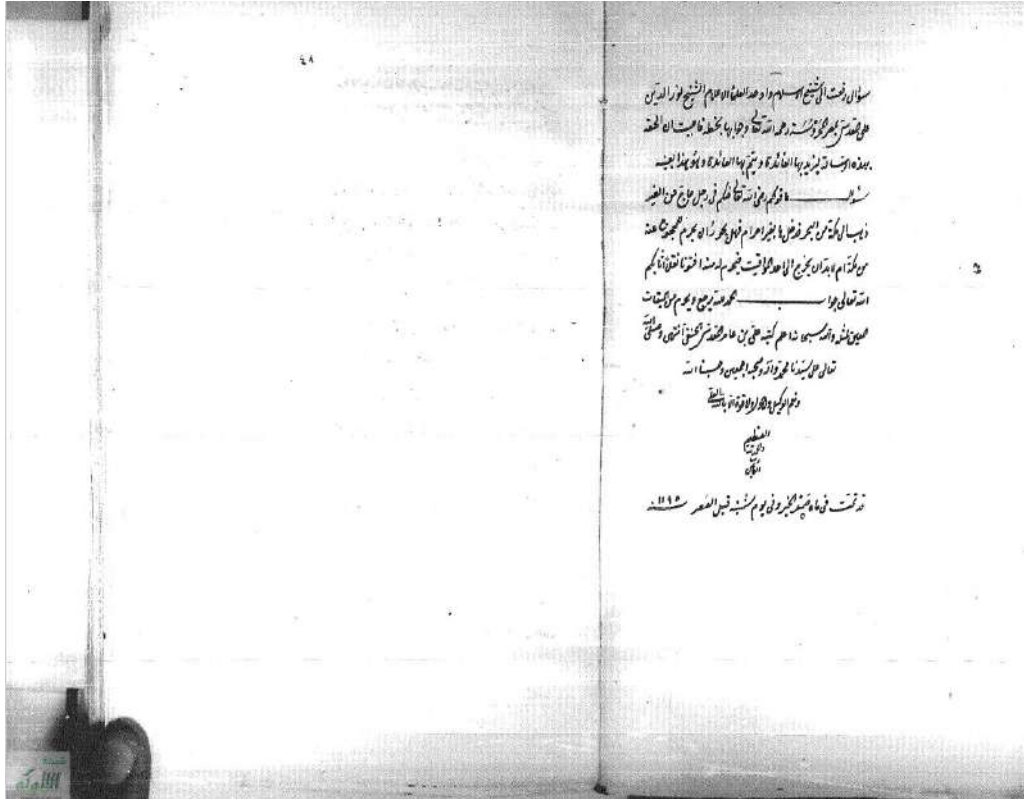 ٤٨
سؤال رفعت الى شيخ الاسلام واوحد العلماء الاعلام الشيخ نور الدين
على المقدسى بمصر المحروسة رحمه الله تعالى وجوابها بخطه فاحببت ان الحقه
بهذه الرسالة ليزيد بها الفائدة ويتم بها العائدة وهو هذا بعينه
سؤال ما قولكم رضى الله تعالى عنكم فى رجل حاج عن الغير
ذهب الى مكة من البحر فدخلها بغير احرام فهل يجوز ان يحرم للحجوج عنه
من مكة ام لا بد ان يخرج الى احد المواقيت فيحرم له منه افتونا اثابكم
الله تعالى جواب الحمد لله يرجع ويحرم من الميقات
والله سبحانه اعلم كتبه على بن غانم المقدسى الحنفى انتهى وصلى الله
تعالى على سيدنا محمد وآله وصحبه اجمعين وحسبنا الله
ونعم الوكيل ولا حول ولا قوة الا بالله العلى
العظيم
قد تمت فى ماه صفر الخير فى يوم شنبه قبل العصر سنه ١١٩٥
شبكة
الألوكة